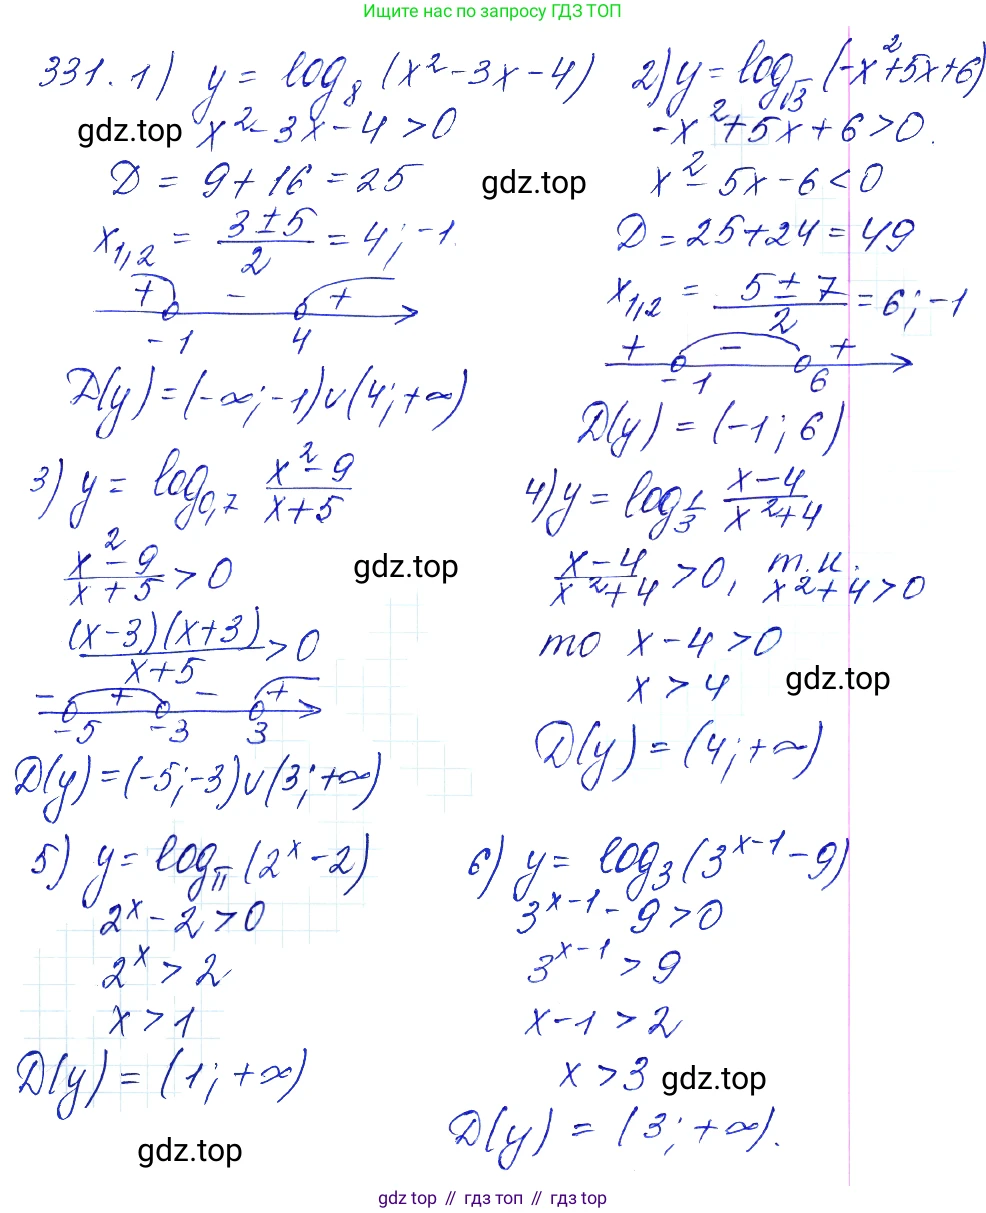 Ищите нас по запросу ГДЗ ТОП
331. 1) y = log₈ (x² - 3x - 4)
x² - 3x - 4 > 0
gdz.top
D = 9 + 16 = 25
x₁,₂ = (3 ± 5)/2 = 4; -1.
+ - +
-1 4
D(y) = (-∞; -1) ∪ (4; +∞)
2) y = log_√3 (-x² + 5x + 6)
-x² + 5x + 6 > 0.
gdz.top
x² - 5x - 6 < 0
D = 25 + 24 = 49
x₁,₂ = (5 ± 7)/2 = 6; -1
+ - +
-1 6
D(y) = (-1; 6)
3) y = log₀,₇ (x² - 9)/(x + 5)
(x² - 9)/(x + 5) > 0
gdz.top
((x - 3)(x + 3))/(x + 5) > 0
- + - +
-5 -3 3
D(y) = (-5; -3) ∪ (3; +∞)
4) y = log_1/3 (x - 4)/(x² + 4)
(x - 4)/(x² + 4) > 0, т.к. x² + 4 > 0
то x - 4 > 0
x > 4
gdz.top
D(y) = (4; +∞)
5) y = log_π (2ˣ - 2)
2ˣ - 2 > 0
2ˣ > 2
x > 1
D(y) = (1; +∞)
gdz.top
6) y = log₃ (3ˣ⁻¹ - 9)
3ˣ⁻¹ - 9 > 0
3ˣ⁻¹ > 9
x - 1 > 2
x > 3
gdz.top
D(y) = (3; +∞).
gdz top // гдз топ // гдз top